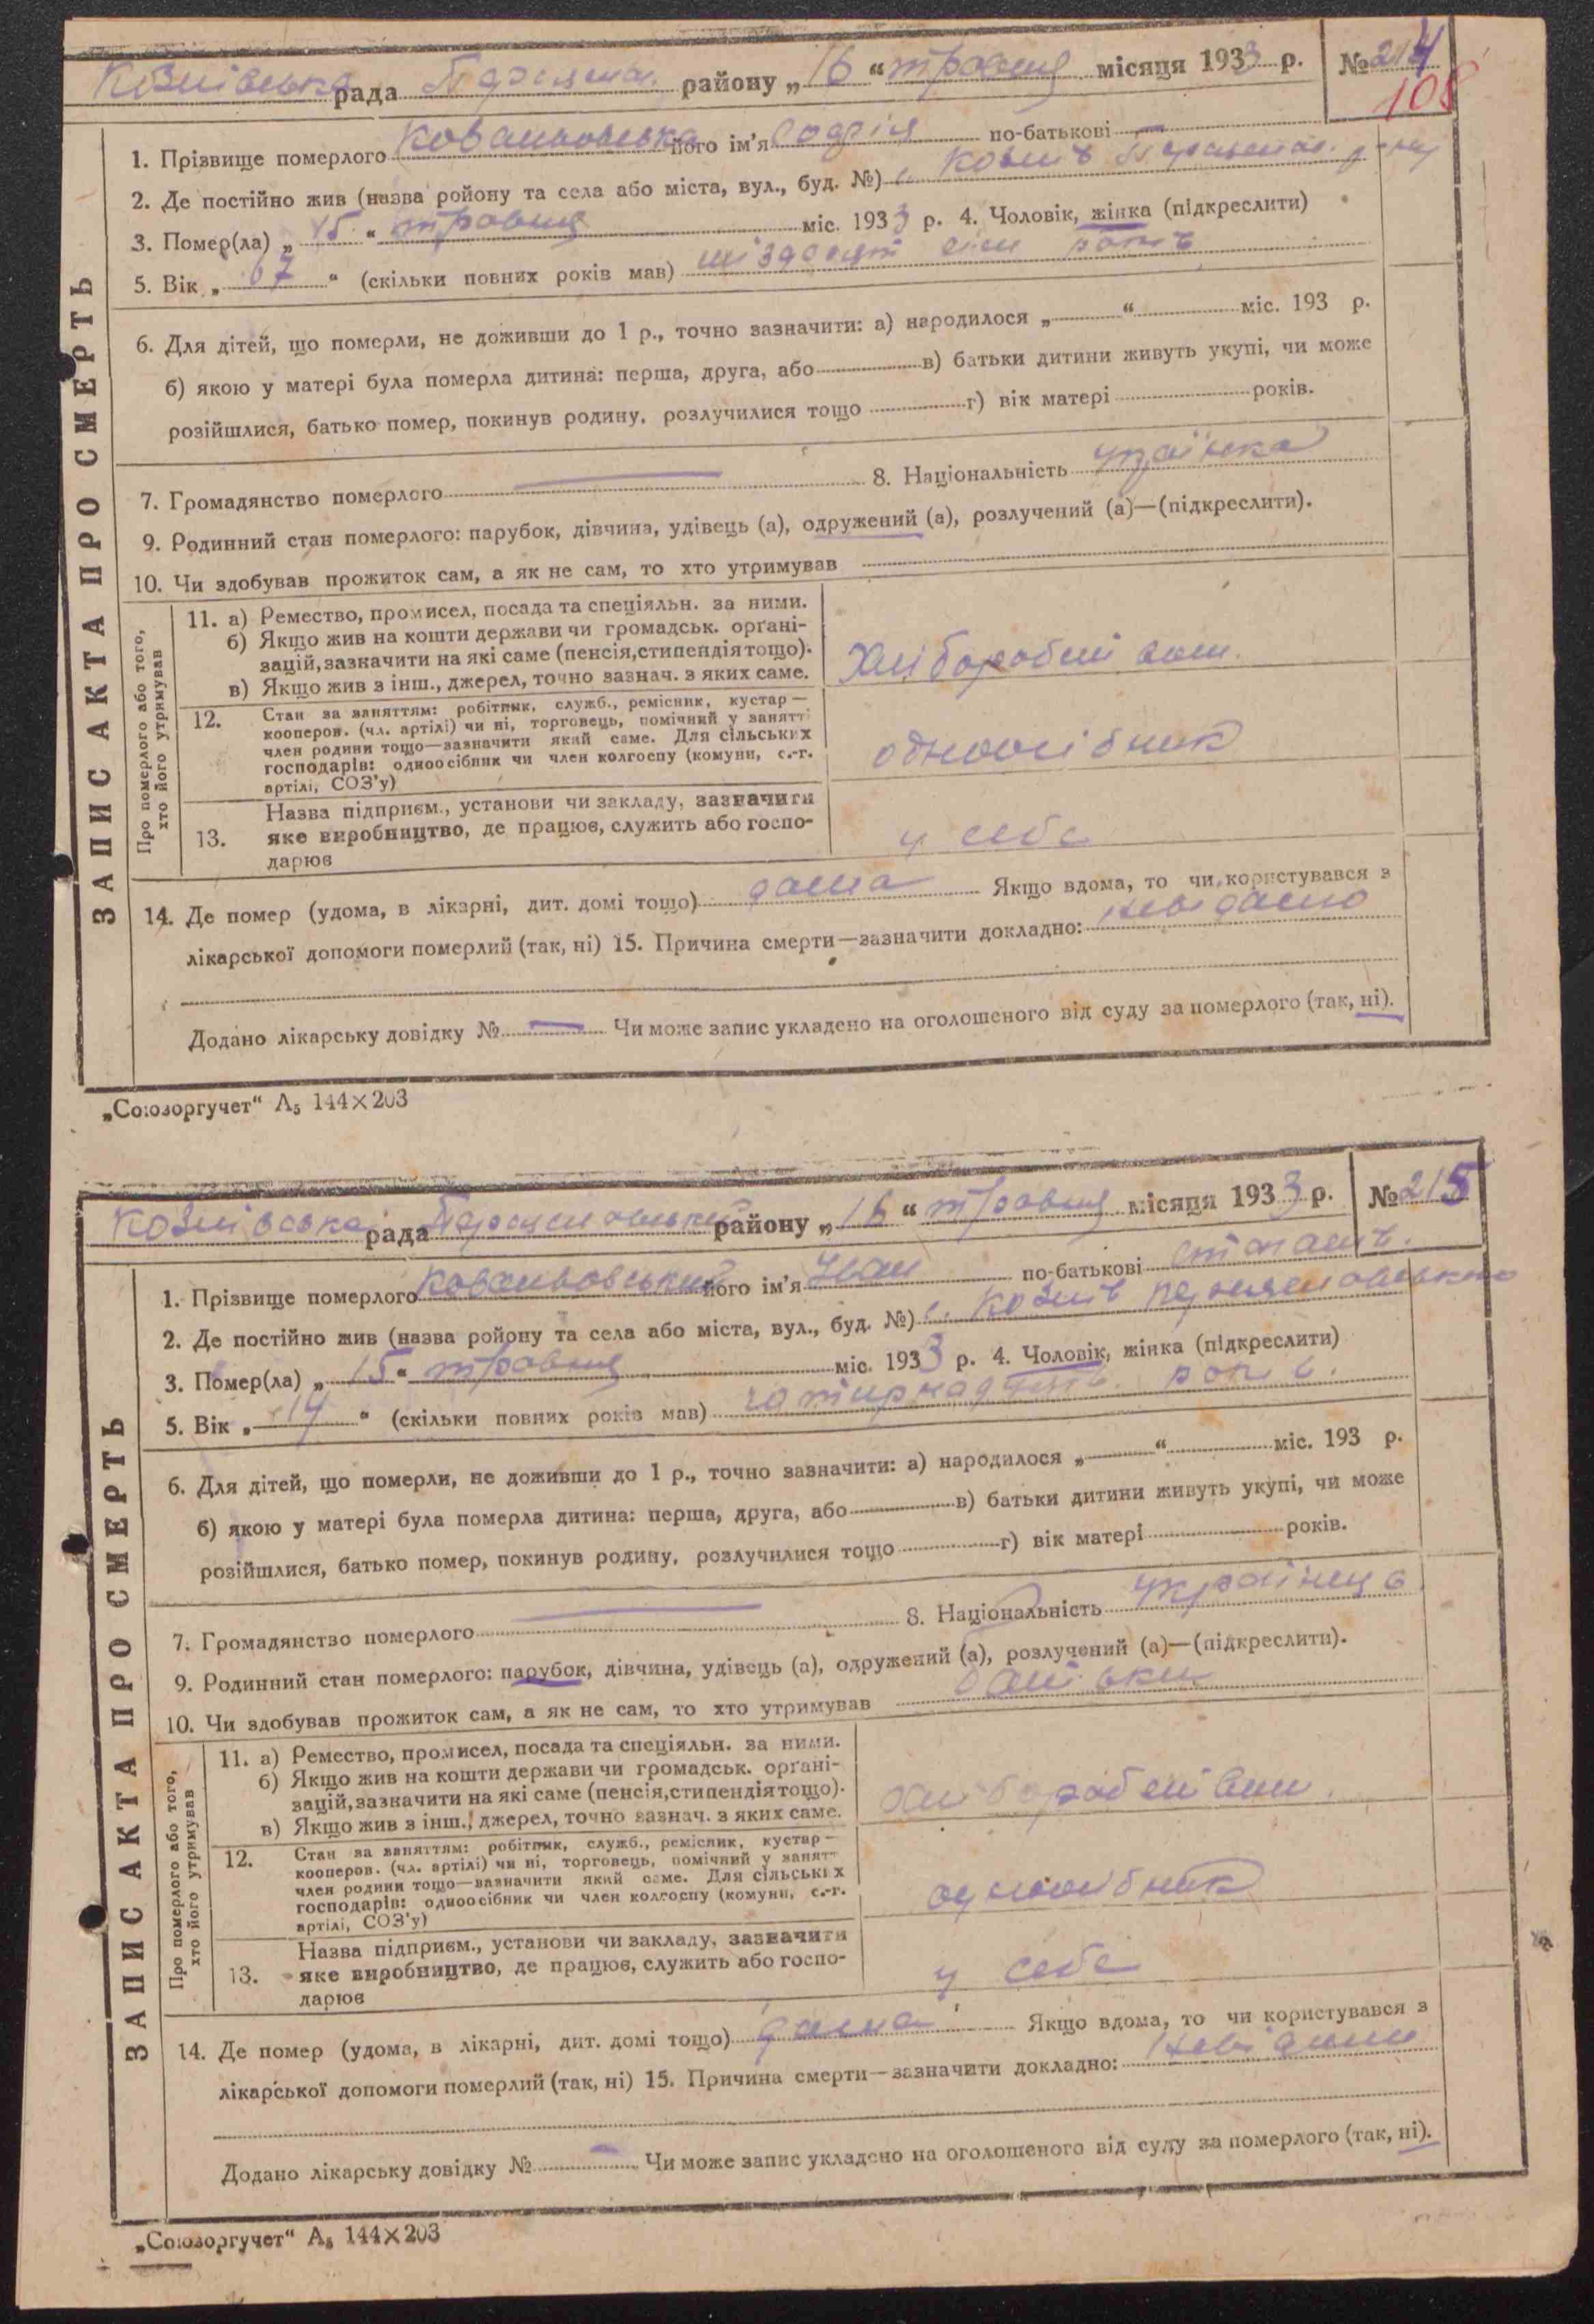 Козлівська рада Переяслав. району „16“ травня місяця 1933 р. № 214
108
ЗАПИС АКТА ПРО СМЕРТЬ
1. Прізвище померлого його ім'я Софія по-батькові —
2. Де постійно жив (назва ройону та села або міста, вул., буд. №) с. Козлів Переяслав. р-ну
3. Помер(ла) „15“ травня міс. 1933 р. 4. Чоловік, жінка (підкреслити)
5. Вік „67“ (скільки повних років мав) шіздесят сім років
6. Для дітей, що померли, не доживши до 1 р., точно зазначити: а) народилося „ “ міс. 193 р.
б) якою у матері була померла дитина: перша, друга, або в) батьки дитини живуть укупі, чи може
розійшлися, батько помер, покинув родину, розлучилися тощо г) вік матері років.
7. Громадянство померлого — 8. Національність
9. Родинний стан померлого: парубок, дівчина, удівець (а), одружений (а), розлучений (а)—(підкреслити).
10. Чи здобував прожиток сам, а як не сам, то хто утримував
Про померлого або того,
хто його утримував
11. а) Ремество, промисел, посада та спеціяльн. за ними.
б) Якщо жив на кошти держави чи громадськ. орґані-
зацій, зазначити на які саме (пенсія, стипендія тощо).
в) Якщо жив з інш., джерел, точно зазнач. з яких саме.
12. Стан за заняттям: робітник, служб., ремісник, кустар—
кооперов. (чл. артілі) чи ні, торговець, помічний у занятт
член родини тощо—зазначити який саме. Для сільських
господарів: одноосібник чи член колгоспу (комуни, с.-г.
артілі, СОЗ'у)
одноосібник
13. Назва підприєм., установи чи закладу, зазначити
яке виробництво, де працює, служить або госпо-
дарює
у себе
14. Де помер (удома, в лікарні, дит. домі тощо) дома Якщо вдома, то чи користувався з
лікарської допомоги померлий (так, ні) 15. Причина смерти—зазначити докладно: невідомо
Додано лікарську довідку № — Чи може запис укладено на оголошеного від суду за померлого (так, ні).
„Союзоргучет“ А5 144×203
Козлівська рада Переяславський району „16“ травня місяця 1933 р. № 215
ЗАПИС АКТА ПРО СМЕРТЬ
1. Прізвище померлого його ім'я Іван по-батькові
2. Де постійно жив (назва ройону та села або міста, вул., буд. №) с. Козлів
3. Помер(ла) „15“ травня міс. 1933 р. 4. Чоловік, жінка (підкреслити)
5. Вік „14“ (скільки повних років мав) років.
6. Для дітей, що померли, не доживши до 1 р., точно зазначити: а) народилося „ “ міс. 193 р.
б) якою у матері була померла дитина: перша, друга, або в) батьки дитини живуть укупі, чи може
розійшлися, батько помер, покинув родину, розлучилися тощо г) вік матері років.
7. Громадянство померлого — 8. Національність українець
9. Родинний стан померлого: парубок, дівчина, удівець (а), одружений (а), розлучений (а)—(підкреслити).
10. Чи здобував прожиток сам, а як не сам, то хто утримував батьки
Про померлого або того,
хто його утримував
11. а) Ремество, промисел, посада та спеціяльн. за ними.
б) Якщо жив на кошти держави чи громадськ. орґані-
зацій, зазначити на які саме (пенсія, стипендія тощо).
в) Якщо жив з інш., джерел, точно зазнач. з яких саме.
12. Стан за заняттям: робітник, служб., ремісник, кустар—
кооперов. (чл. артілі) чи ні, торговець, помічний у занятт
член родини тощо—зазначити який саме. Для сільських
господарів: одноосібник чи член колгоспу (комуни, с.-г.
артілі, СОЗ'у)
одноосібник
13. Назва підприєм., установи чи закладу, зазначити
яке виробництво, де працює, служить або госпо-
дарює
у себе
14. Де помер (удома, в лікарні, дит. домі тощо) дома Якщо вдома, то чи користувався з
лікарської допомоги померлий (так, ні) 15. Причина смерти—зазначити докладно:
Додано лікарську довідку № — Чи може запис укладено на оголошеного від суду за померлого (так, ні).
„Союзоргучет“ А5 144×203